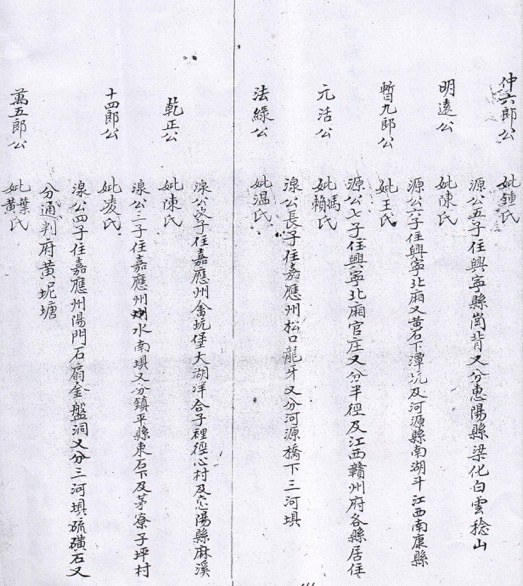 仲六郎公
妣鍾氏
源公五子住興寧縣崗背又分惠陽縣梁化白雲稔山
明遠公
妣陳氏
源公六子住興寧北廂又黃石下潭坑及河源縣南湖斗江西南康縣
暫九郎公
妣王氏
源公七子住興寧北廂官庄又分半徑及江西贛州府各縣居住
元活公
妣馮賴氏
湶公長子住嘉應州松口龍牙又分河源橋下三河埧
法緣公
妣温氏
湶公次子住嘉應州畬坑堡大湖洋合子裡徑心村及惠陽縣麻溪
乾正公
妣陳氏
湶公三子住嘉應州水南埧又分鎮平縣東石下及茅寮子坪村
十四郎公
妣凌氏
湶公四子住嘉應州陽門石扇金盤洞又分三河埧硫磺石又
分通判府黃坭塘
萬五郎公
妣葉黃氏